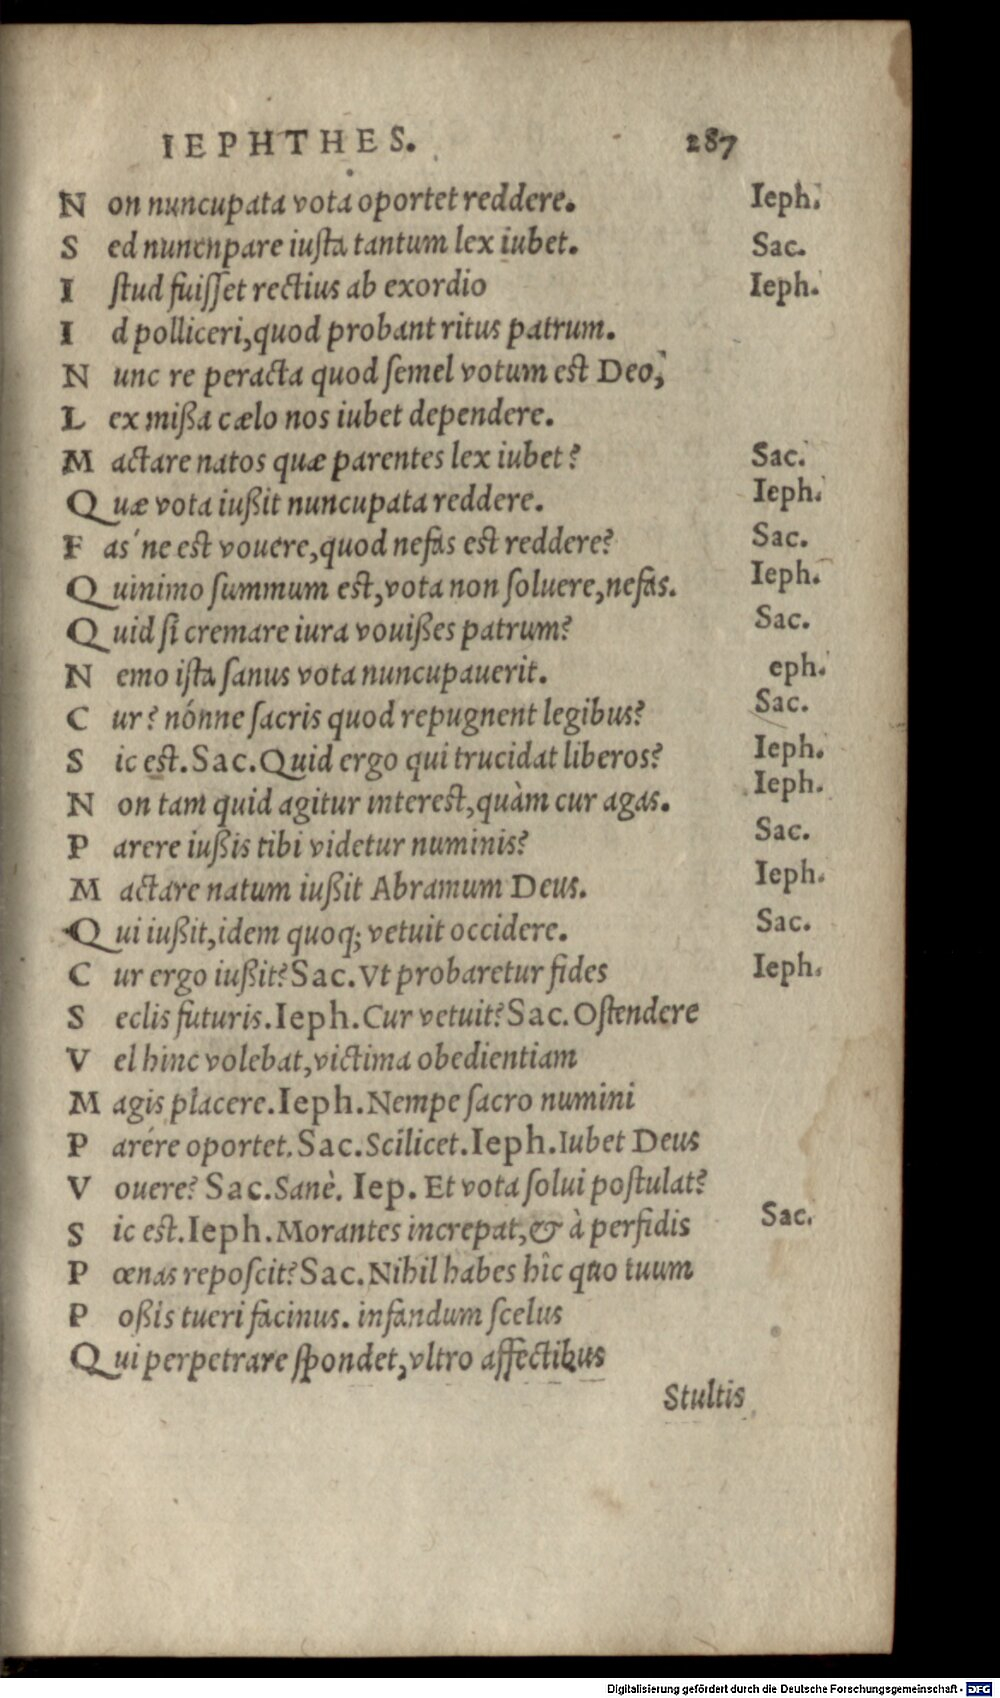 IEPHTHES. 287
Non nuncupata vota oportet reddere. Ieph.
Sed nuncnpare iusta tantum lex iubet. Sac.
Istud fuisset rectius ab exordio Ieph.
Id polliceri, quod probant ritus patrum.
Nunc re peracta quod semel votum est Deo,
Lex mißa cælo nos iubet dependere.
Mactare natos quæ parentes lex iubet? Sac.
Quæ vota iußit nuncupata reddere. Ieph.
Fas'ne est vouere, quod nefas est reddere? Sac.
Quinimo summum est, vota non soluere, nefas. Ieph.
Quid si cremare iura vouißes patrum? Sac.
Nemo ista sanus vota nuncupauerit. eph.
Cur? nónne sacris quod repugnent legibus? Sac.
Sic est. Sac. Quid ergo qui trucidat liberos? Ieph.
Non tam quid agitur interest, quàm cur agas. Ieph.
Parere iußis tibi videtur numinis? Sac.
Mactare natum iußit Abramum Deus. Ieph.
Qui iußit, idem quoq; vetuit occidere. Sac.
Cur ergo iußit? Sac. Vt probaretur fides Ieph.
Seclis futuris. Ieph. Cur vetuit? Sac. Ostendere
Vel hinc volebat, victima obedientiam
Magis placere. Ieph. Nempe sacro numini
Parére oportet. Sac. Scilicet. Ieph. Iubet Deus
Vouere? Sac. Sanè. Iep. Et vota solui postulat?
Sic est. Ieph. Morantes increpat, & à perfidis Sac.
Pœnas reposcit? Sac. Nihil habes hîc quo tuum
Poßis tueri facinus. infandum scelus
Qui perpetrare spondet, vltro affectibus
Stultis
Digitalisierung gefördert durch die Deutsche Forschungsgemeinschaft - DFG